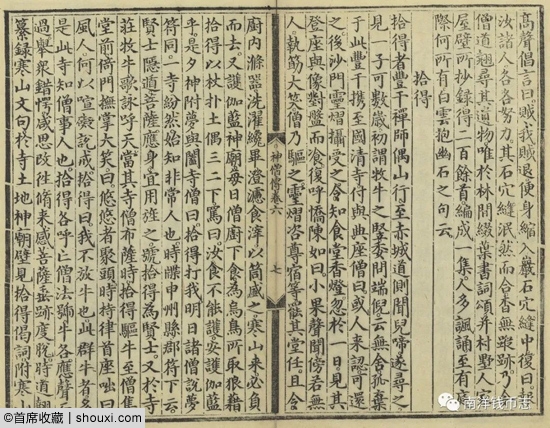 高聲倡言曰賊我賊退便身縮入巖石穴縫中復曰報
汝諸人各各努力其石穴縫泯然而合杳無蹤跡乃令
僧道翹尋其遺物唯於林間綴葉書詞頌并村墅人家
屋壁所抄錄得二百餘首編成一集人多諷誦至有庭
際何所有白雲抱幽石之句云
拾得
拾得者豐干禪師偶山行至赤城道側聞兒啼遂尋之
見一子可數歲初謂牧牛之豎委問端倪云無舍孤棄
于此豐干攜至國清寺付與典座僧曰或人來認可還
之後沙門靈熠攝受之令知食堂香燈忽於一日見其
登座與像對盤而食復呼憍陳如曰小果聲聞傍若無
人執筯大笑僧乃驅之靈熠咨尊宿等罷其堂任且令
神僧傳卷六 七
廚內滌器洗濯纔畢澄濾食滓以筒盛之寒山來必負
而去又護伽藍神廟每日僧廚下食為烏鳥所取狼藉
拾得以杖扑土偶三二下罵曰汝食不能護安護伽藍
乎是夕神附夢與闔寺僧曰拾得打我明日諸僧說夢
符同一寺紛然始知非常人也時牒申州縣郡符下云
賢士隱遁菩薩應身宜用旌之號拾得為賢士又於寺
莊牧牛歌詠呼天當其寺僧布薩時拾得驅牛至僧集
堂前倚門撫掌大笑曰悠悠者聚頭時持律首座咄曰
風人何以喧礙說戒拾得曰我不放牛也此群牛者多
是此寺知僧事人也拾得各呼亡僧法號牛各應聲而
過舉眾錯愕咸思改往修來感菩薩垂跡度脫時道翹
纂錄寒山文句於寺土地神廟壁見拾得偈詞附寒山
©首席收藏 | shouxi.com
南洋钱币志